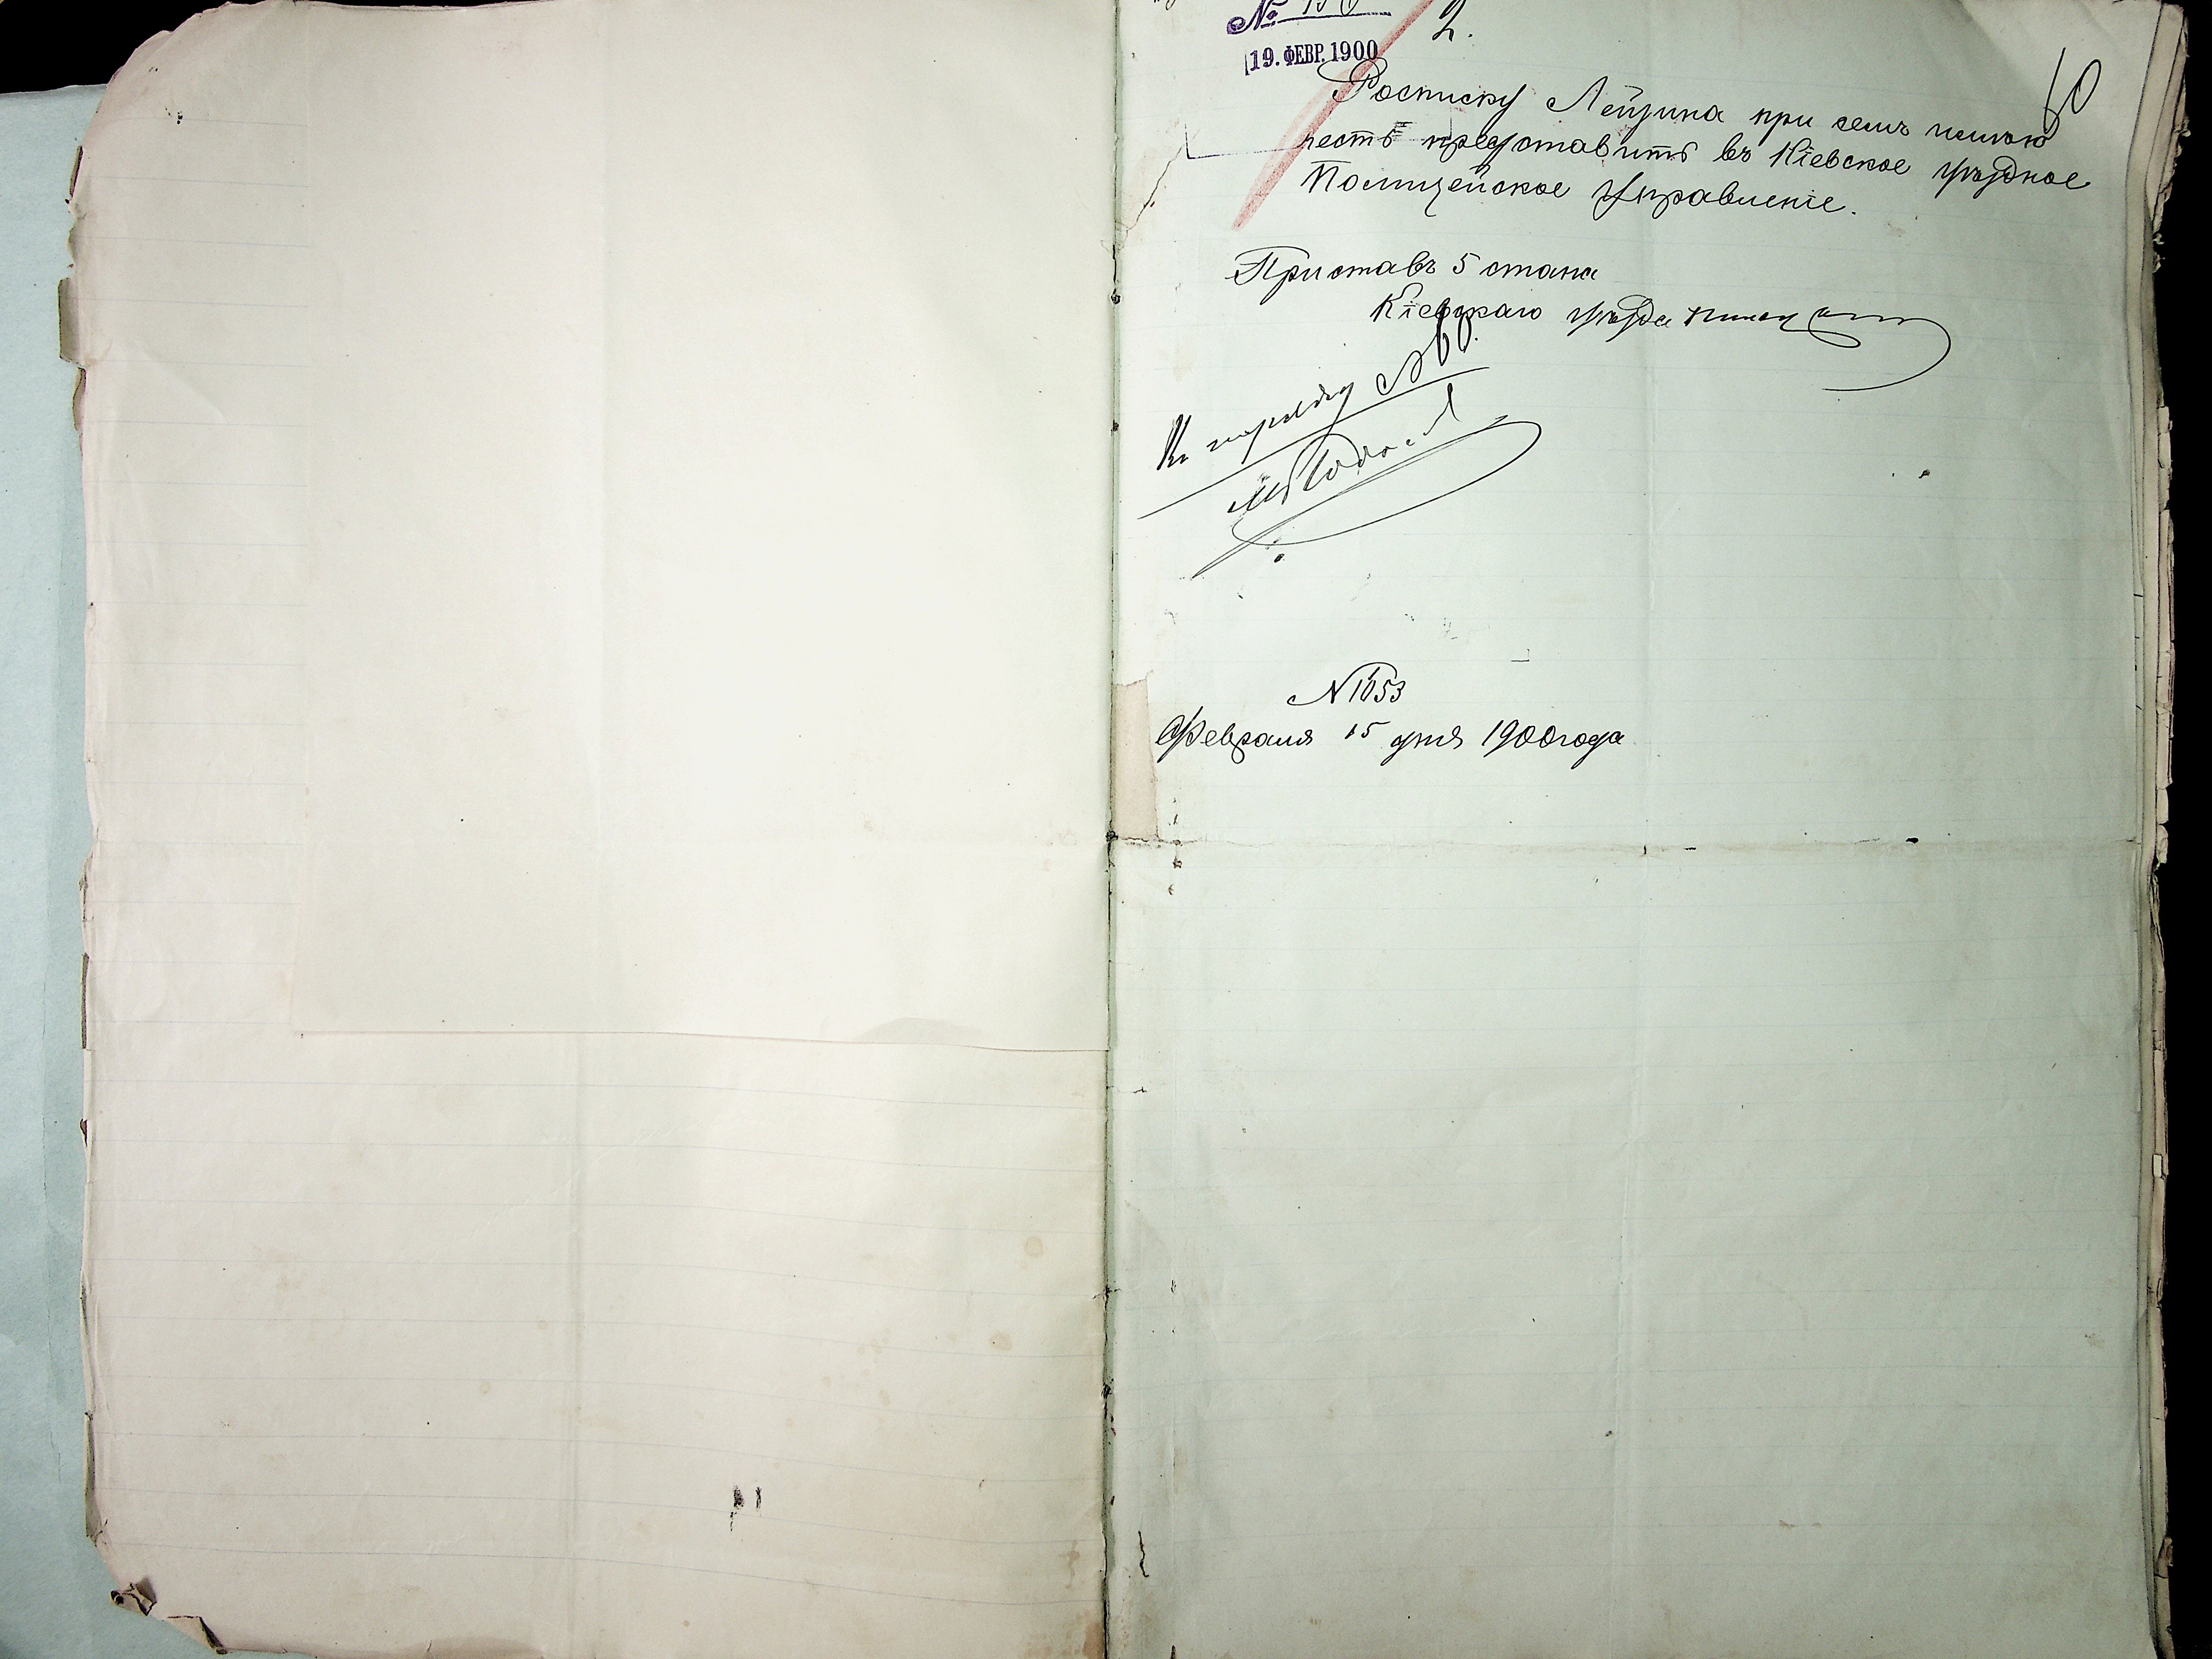 №
2.
19. ФЕВР. 1900
60
Росписку Лейзина при семъ имѣю
честь представить въ Кіевское уѣздное
Полицейское Управленіе.
Приставъ 5 стана
Кіевскаго уѣзда
Къ наряду №
N 1053
Февраля 15 дня 1900 года